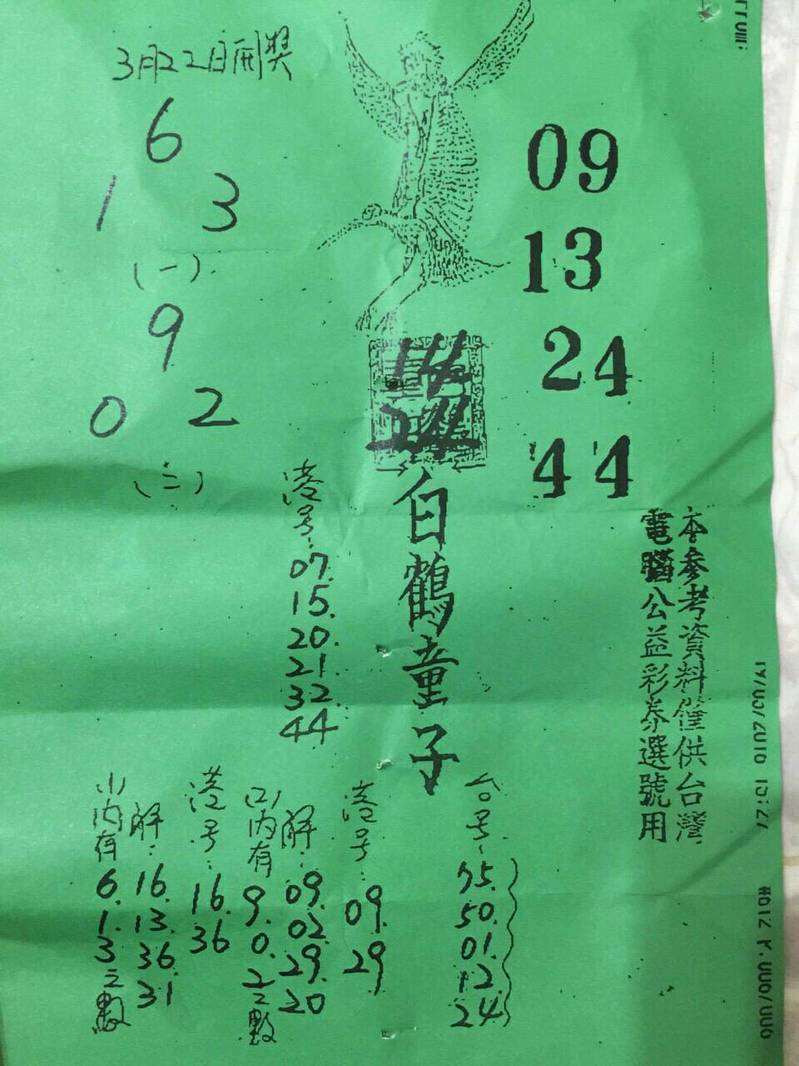 3月22日開獎
6
1 3
(一)
9
0 2
(二)
09
13
24
44
14
24
白鶴童子
港号:
07.
15.
20.
21.
32.
44
本參考資料僅供台灣
電腦公益彩券選號用
台号:
75.
50.
01.
12.
24
港号:
09.
29
解:
09.
02.
29.
20
(2)內有
9.
0.
2之數
港号:
16.
36
解:
16.
13.
36.
31
(1)內有
6.
1.
3之數